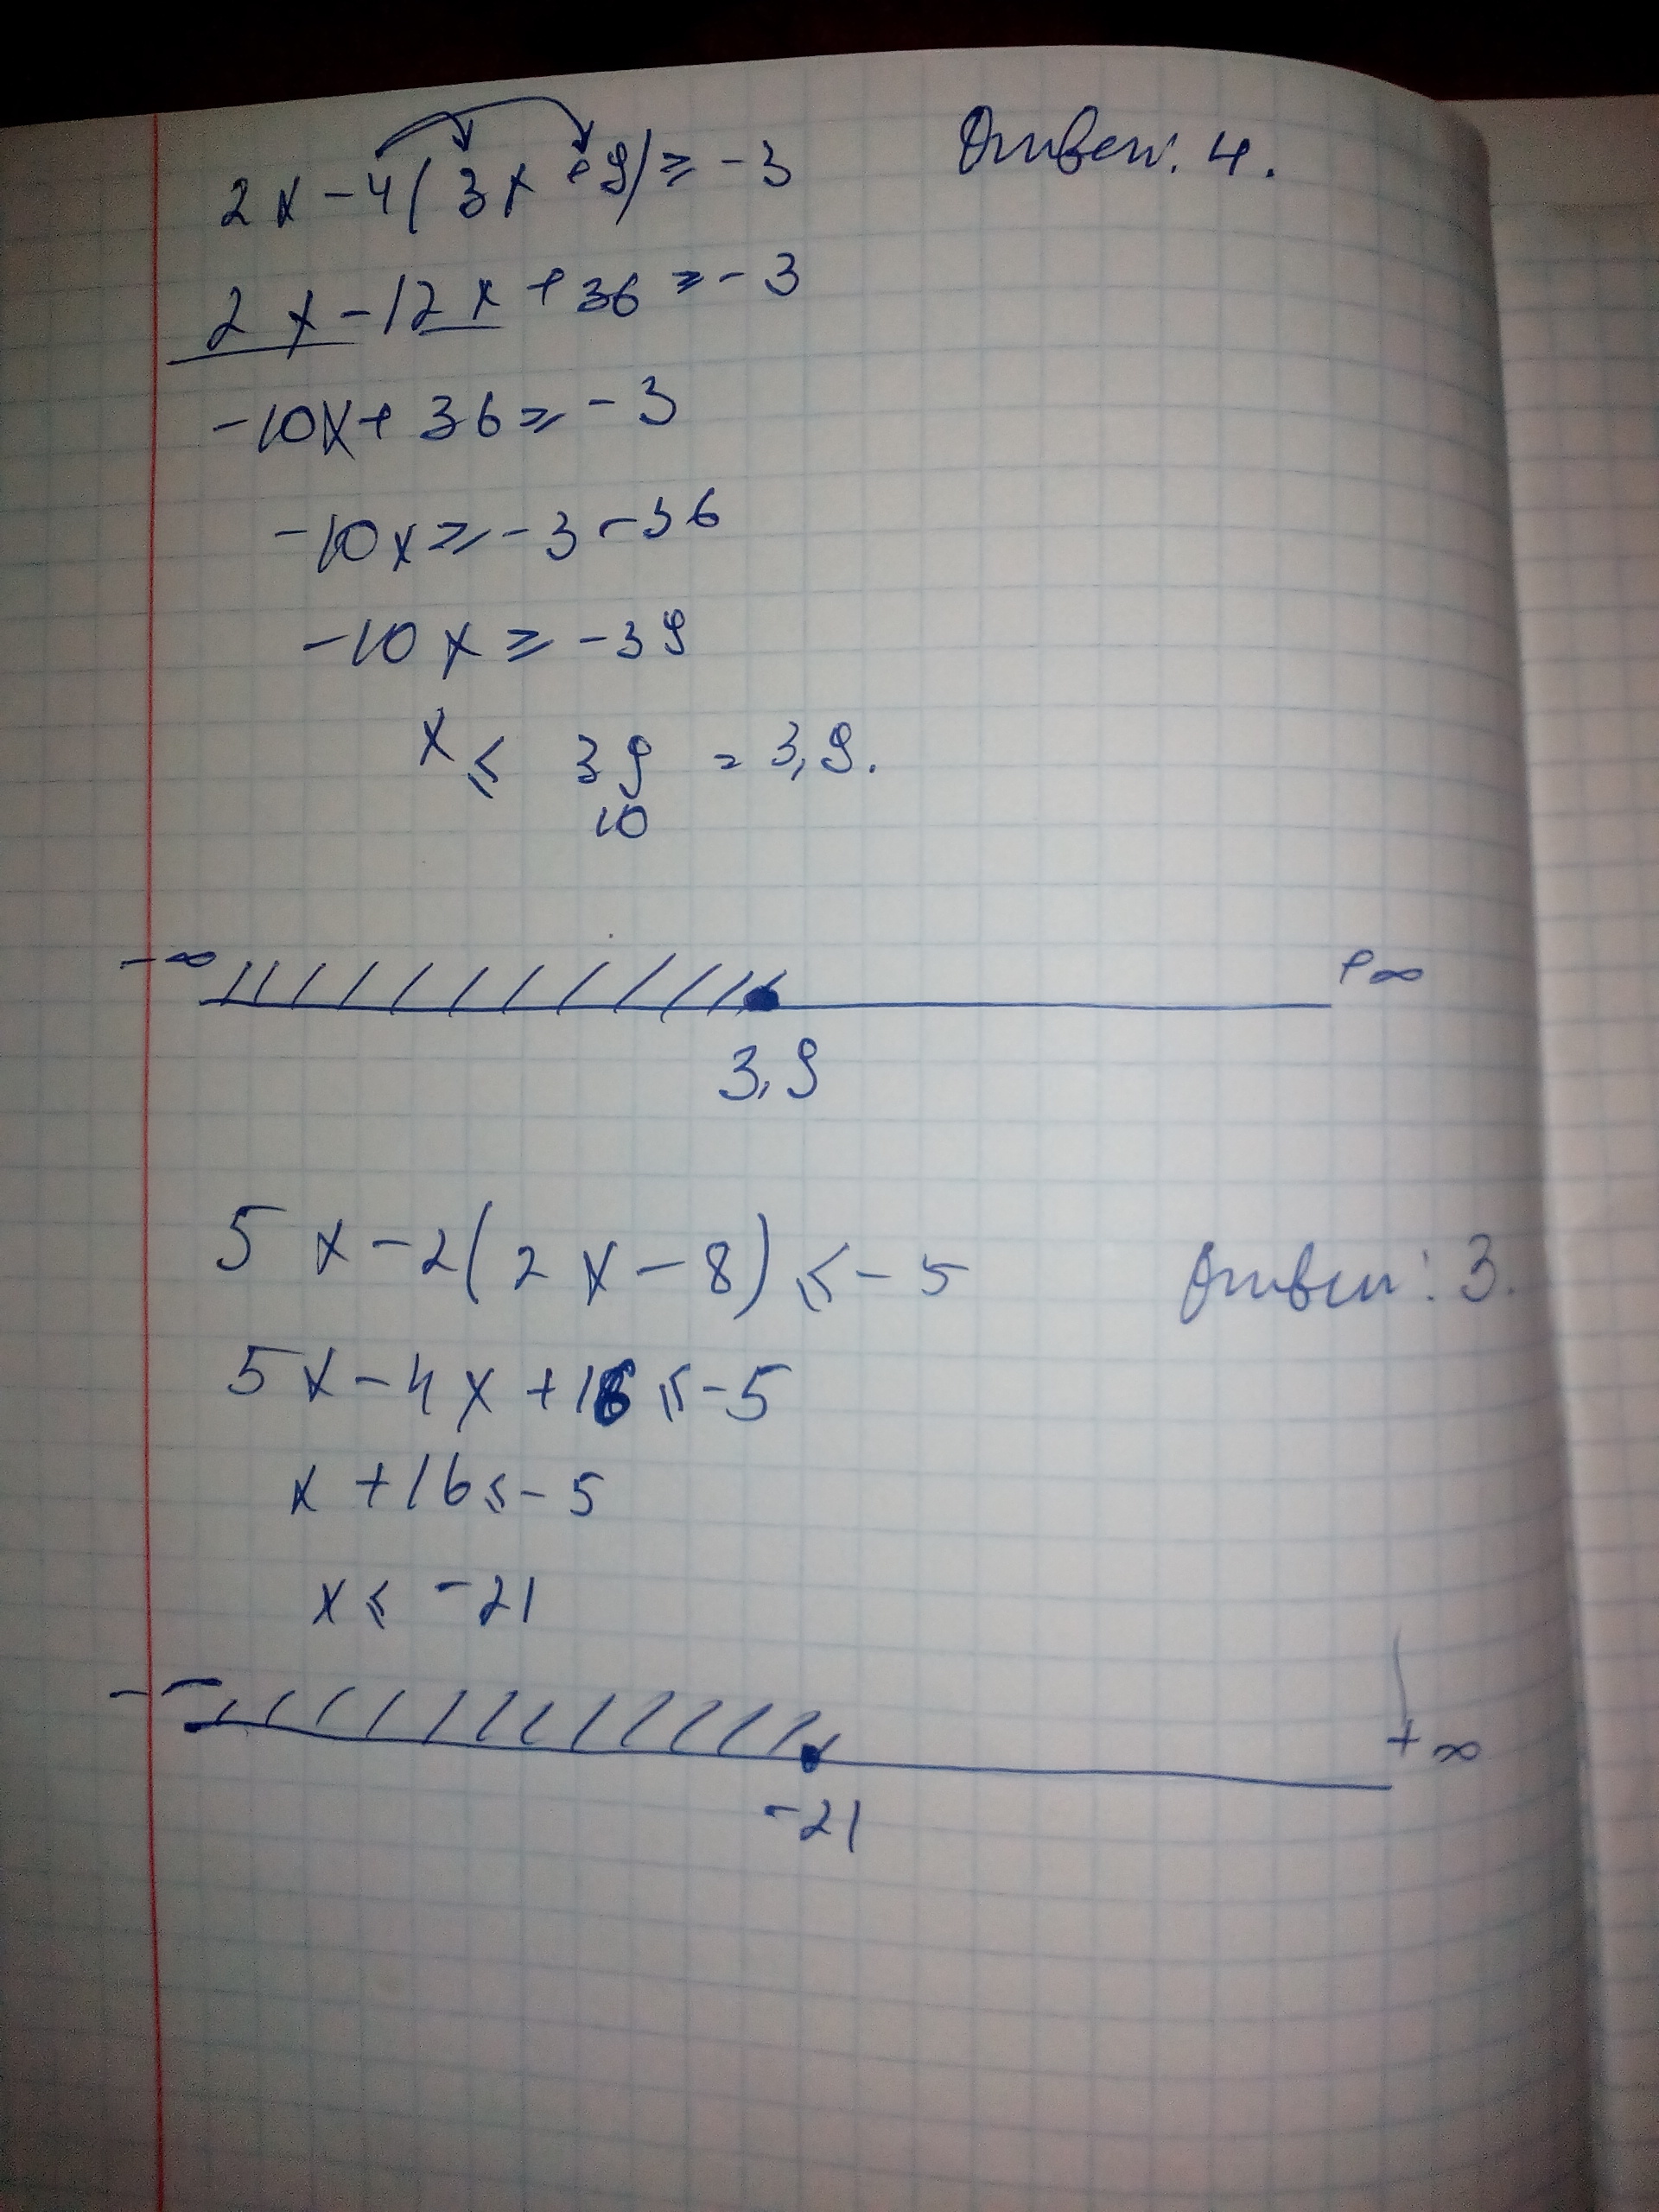 2x-4(3x+9)≥-3 Ответ: 4.
2x-12x+36≥-3
-10x+36≥-3
-10x≥-3-36
-10x≥-39
x≤ 39 = 3,9.
10
-∞ +∞
3,9
5x-2(2x-8)≤-5 Ответ: 3.
5x-4x+16≤-5
x+16≤-5
x≤-21
- +∞
-21